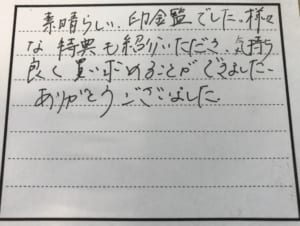 素晴らしい、印鑑でした。様々
な特典も紹介いただき、気持ち
良く買い求めることができました。
ありがとうございました。